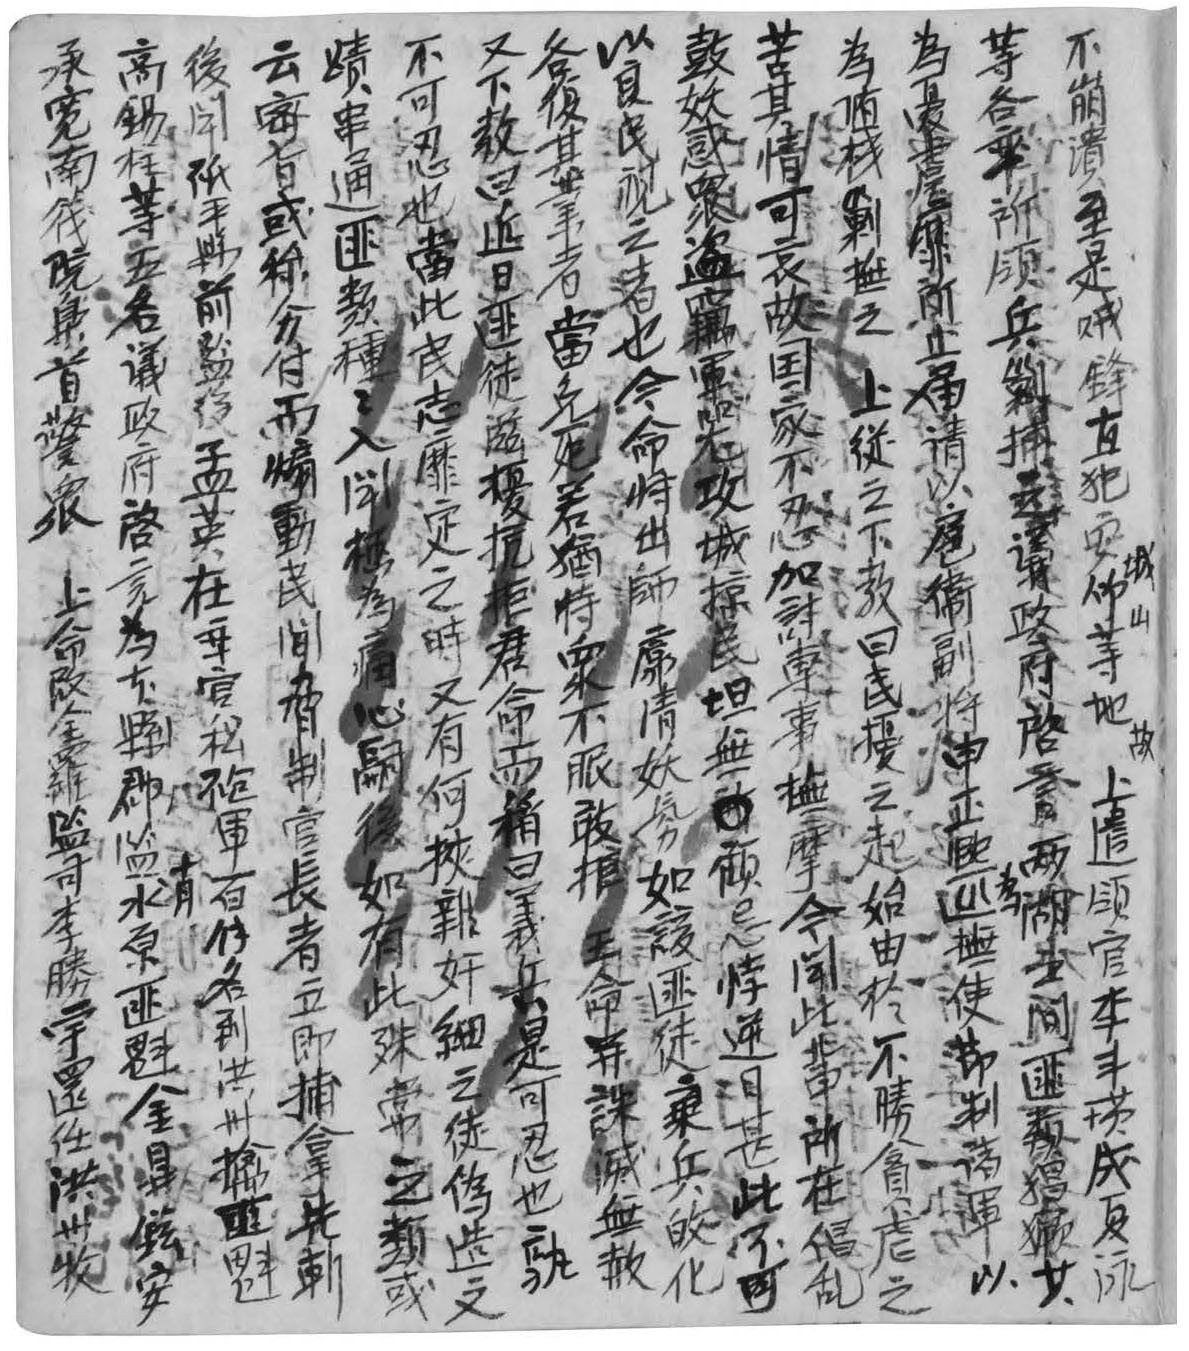 不崩潰至是賊鋒直犯 城山等地 故 上遣領官李斗璜成夏泳
等各率所領兵剿捕 議政府啓言兩湖之間匪類猖獗 其
為憂虞靡所止届请以扈衛副將申正熙為巡撫使節制諸軍以
為 剿撫之 上從之下教曰民擾之起始由於不勝貪虐之
苦其情可哀故国家不忍加討專事撫摩今聞此輩所在倡乱
鼓妖惑衆盗竊軍器攻城掠民坦無顧忌悖逆日甚此不可
以良民視之者也今命將出師廓清妖氛如該匪徒棄兵 化
各復其業者當免死若猶恃衆不服敢拒 王命并誅滅無赦
又下教曰近日匪徒 擾抗拒君命而稱曰義兵是可忍也孰
不可忍也當此民志靡定之時又有何挾雜奸細之徒偽造文
蹟串通匪類種々入聞極為痛心嗣後如有此殊常之類或
云密旨或称分付而煽動民间脅制官長者立即捕拿先斬
後聞 前監役孟英在 官 砲軍百 名到洪州擒匪魁
高錫柱等五名議政府啓言為 縣郡 有水原匪魁金鼎鉉安
承寛南伐院梟首警衆 上命改全羅監司李勝宇還任洪州牧